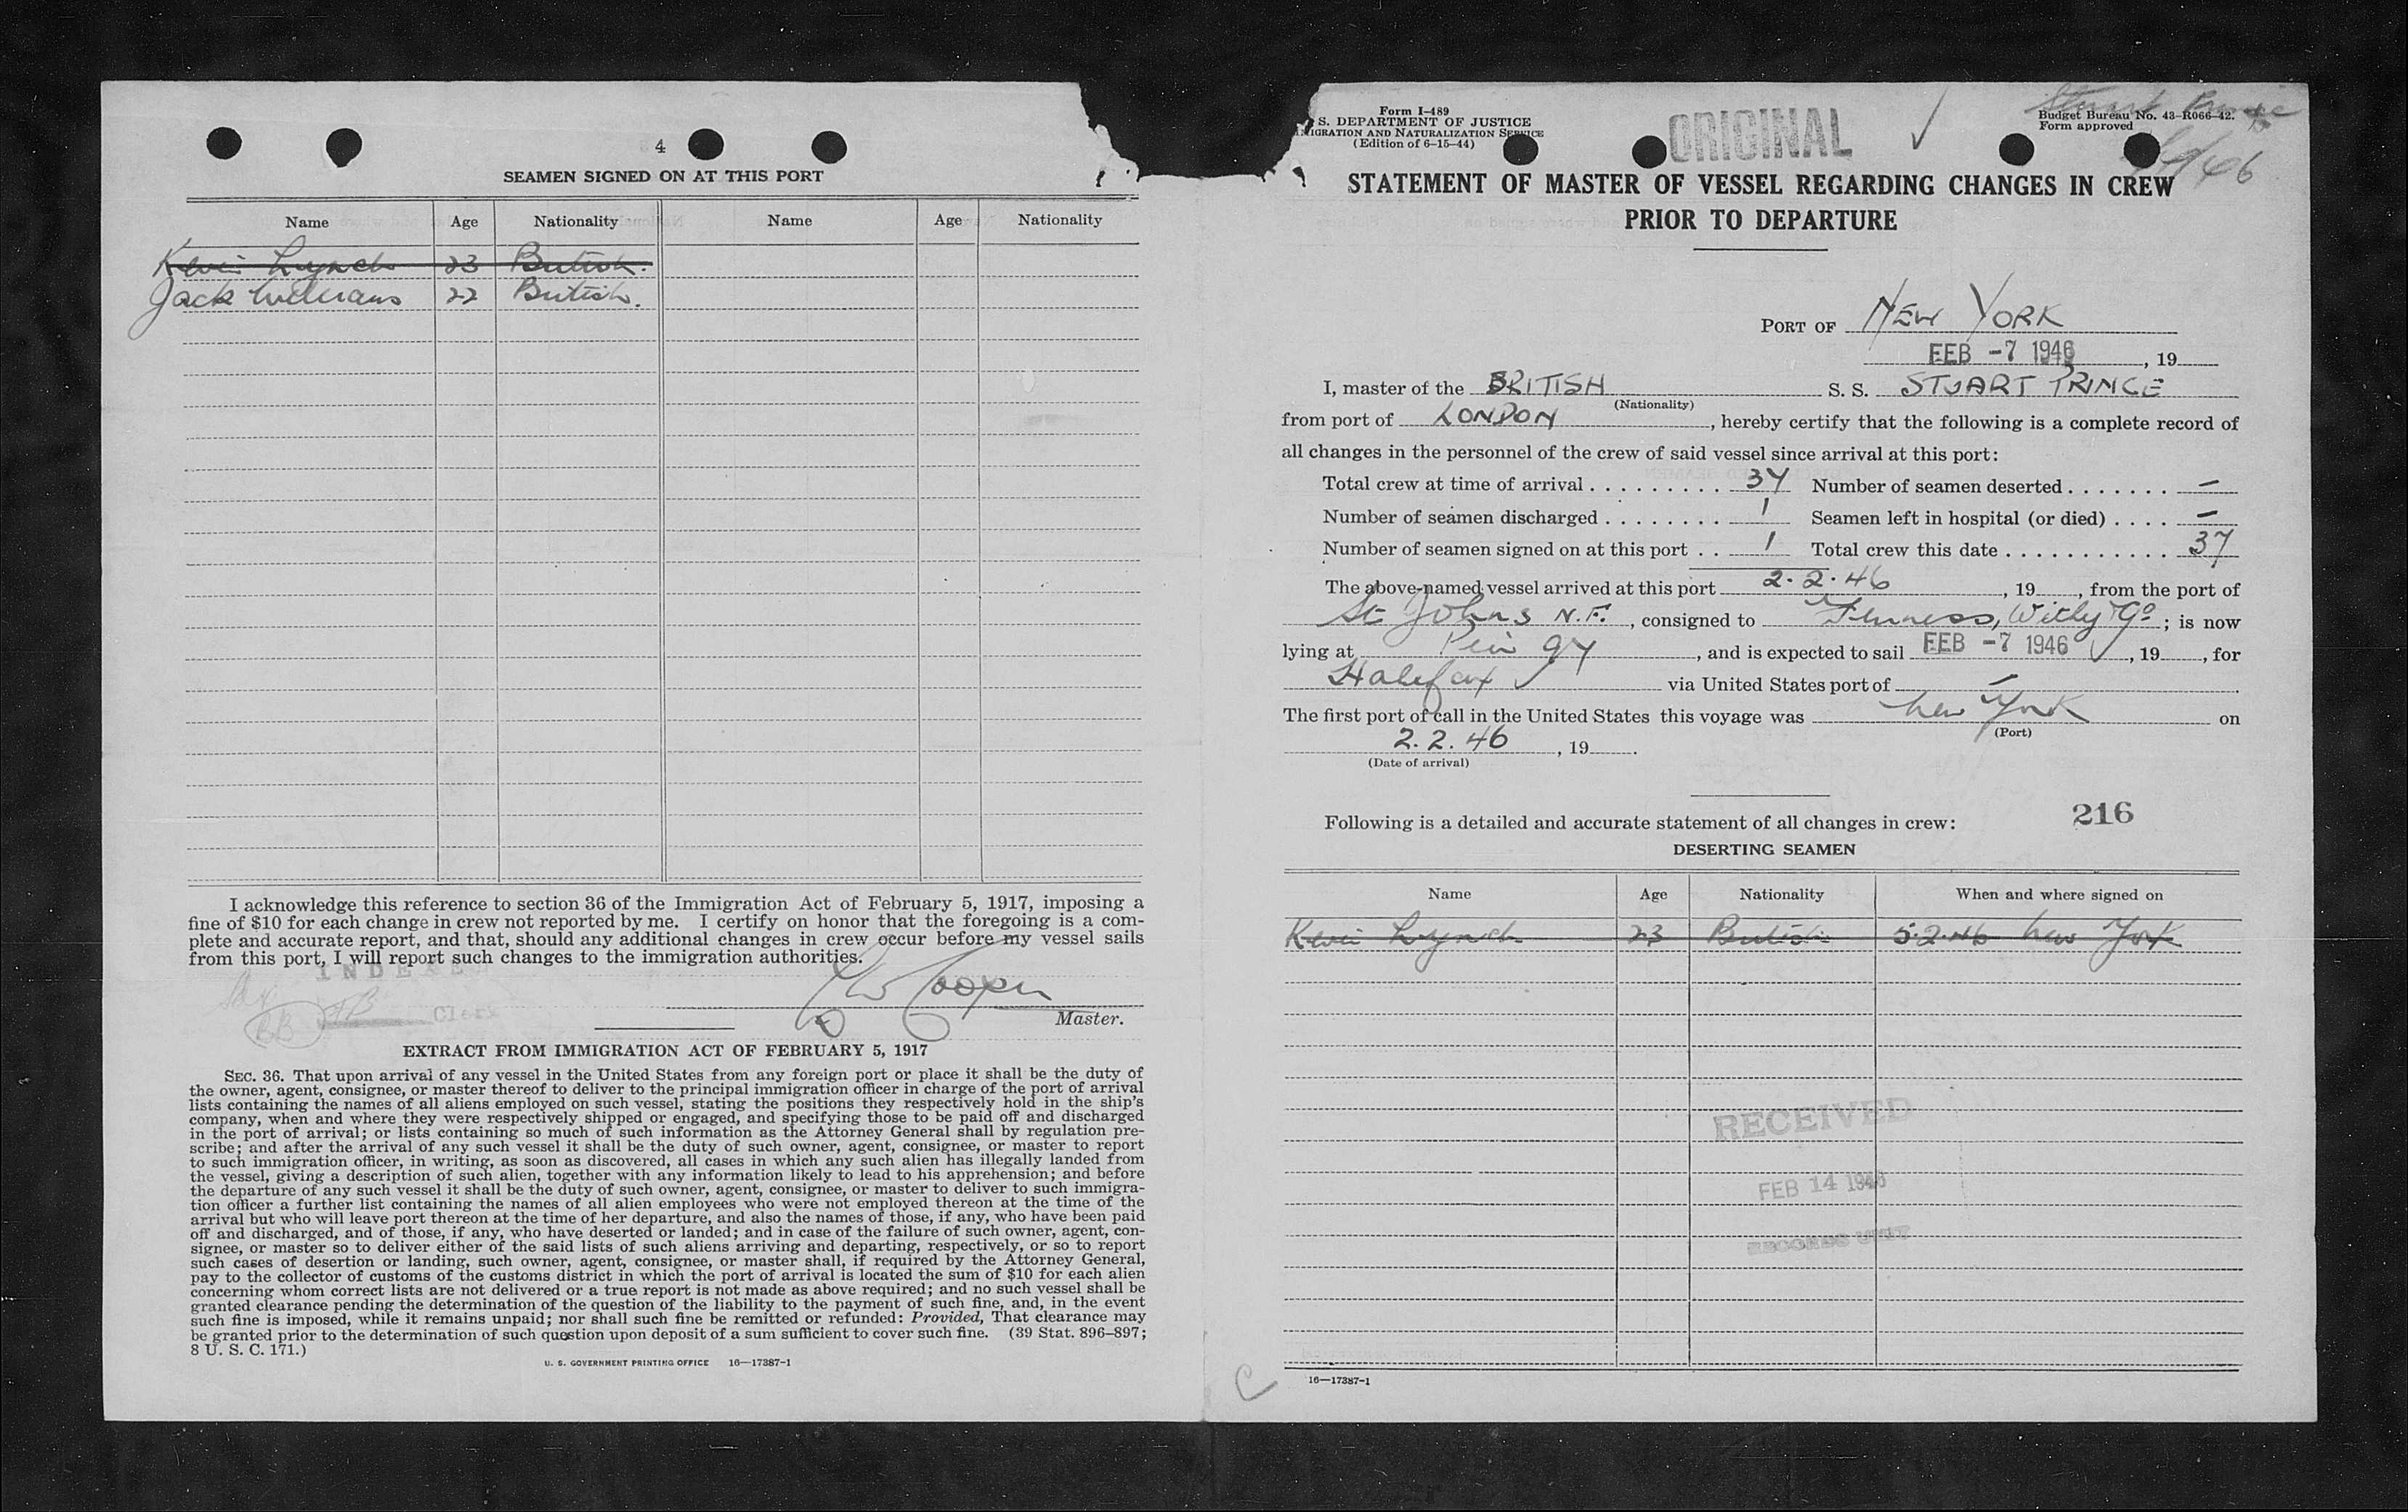 4
SEAMEN SIGNED ON AT THIS PORT
Name Age Nationality Name Age Nationality
Kevin Lynch 23 British.
Jack Williams 22 British.
I acknowledge this reference to section 36 of the Immigration Act of February 5, 1917, imposing a
fine of $10 for each change in crew not reported by me. I certify on honor that the foregoing is a com-
plete and accurate report, and that, should any additional changes in crew occur before my vessel sails
from this port, I will report such changes to the immigration authorities.
INDEXED
Cooper
BB JB Clerk
Master.
EXTRACT FROM IMMIGRATION ACT OF FEBRUARY 5, 1917
SEC. 36. That upon arrival of any vessel in the United States from any foreign port or place it shall be the duty of
the owner, agent, consignee, or master thereof to deliver to the principal immigration officer in charge of the port of arrival
lists containing the names of all aliens employed on such vessel, stating the positions they respectively hold in the ship's
company, when and where they were respectively shipped or engaged, and specifying those to be paid off and discharged
in the port of arrival; or lists containing so much of such information as the Attorney General shall by regulation pre-
scribe; and after the arrival of any such vessel it shall be the duty of such owner, agent, consignee, or master to report
to such immigration officer, in writing, as soon as discovered, all cases in which any such alien has illegally landed from
the vessel, giving a description of such alien, together with any information likely to lead to his apprehension; and before
the departure of any such vessel it shall be the duty of such owner, agent, consignee, or master to deliver to such immigra-
tion officer a further list containing the names of all alien employees who were not employed thereon at the time of the
arrival but who will leave port thereon at the time of her departure, and also the names of those, if any, who have been paid
off and discharged, and of those, if any, who have deserted or landed; and in case of the failure of such owner, agent, con-
signee, or master so to deliver either of the said lists of such aliens arriving and departing, respectively, or so to report
such cases of desertion or landing, such owner, agent, consignee, or master shall, if required by the Attorney General,
pay to the collector of customs of the customs district in which the port of arrival is located the sum of $10 for each alien
concerning whom correct lists are not delivered or a true report is not made as above required; and no such vessel shall be
granted clearance pending the determination of the question of the liability to the payment of such fine, and, in the event
such fine is imposed, while it remains unpaid; nor shall such fine be remitted or refunded: Provided, That clearance may
be granted prior to the determination of such question upon deposit of a sum sufficient to cover such fine. (39 Stat. 896–897;
8 U. S. C. 171.)
U. S. GOVERNMENT PRINTING OFFICE 16—17387-1
Form I-489
S. DEPARTMENT OF JUSTICE
IGRATION AND NATURALIZATION SERVICE
(Edition of 6-15-44)
ORIGINAL
Stuart Prince
Budget Bureau No. 43-R066-42.
Form approved
STATEMENT OF MASTER OF VESSEL REGARDING CHANGES IN CREW
PRIOR TO DEPARTURE
PORT OF NEW YORK
FEB -7 1946, 19
I, master of the BRITISH S. S. STUART PRINCE
(Nationality)
from port of LONDON, hereby certify that the following is a complete record of
all changes in the personnel of the crew of said vessel since arrival at this port:
Total crew at time of arrival 37 Number of seamen deserted –
Number of seamen discharged 1 Seamen left in hospital (or died) –
Number of seamen signed on at this port 1 Total crew this date 37
The above-named vessel arrived at this port 2.2.46, 19, from the port of
St Johns N.F., consigned to Furness, Withy & Co; is now
lying at Pier 97, and is expected to sail FEB -7 1946, 19, for
Halifax via United States port of –
The first port of call in the United States this voyage was New York on
(Port)
2.2.46, 19.
(Date of arrival)
Following is a detailed and accurate statement of all changes in crew: 216
DESERTING SEAMEN
Name Age Nationality When and where signed on
Kevin Lynch 23 British 5.2.46 New York
RECEIVED
FEB 14 1946
RECORDS UNIT
16—17387-1